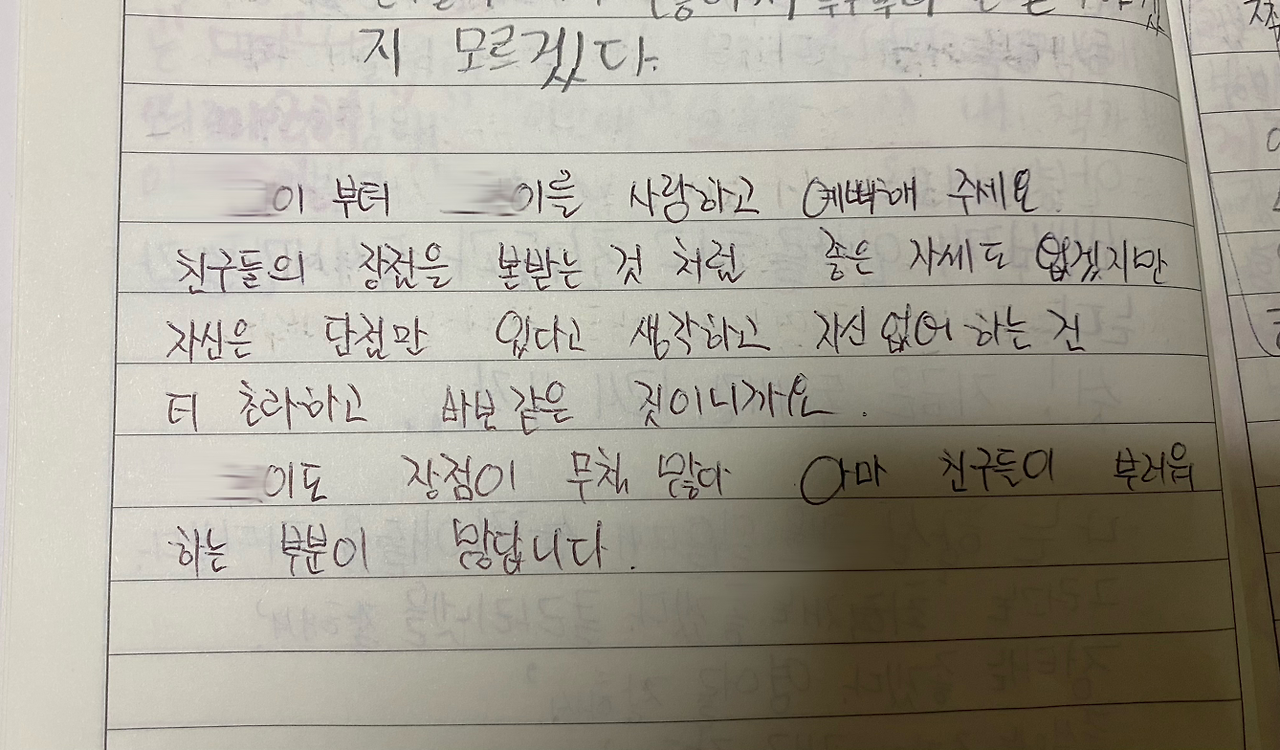 지 모르겠다.
이 부터 이를 사랑하고 예뻐해 주세요.
친구들의 장점을 본받는 것 처럼 좋은 자세도 없겠지만
자신은 단점만 있다고 생각하고 자신 없어 하는 건
더 초라하고 바보같은 짓이니까요.
이도 장점이 무척 많아 아마 친구들이 부러워
하는 부분이 많답니다.